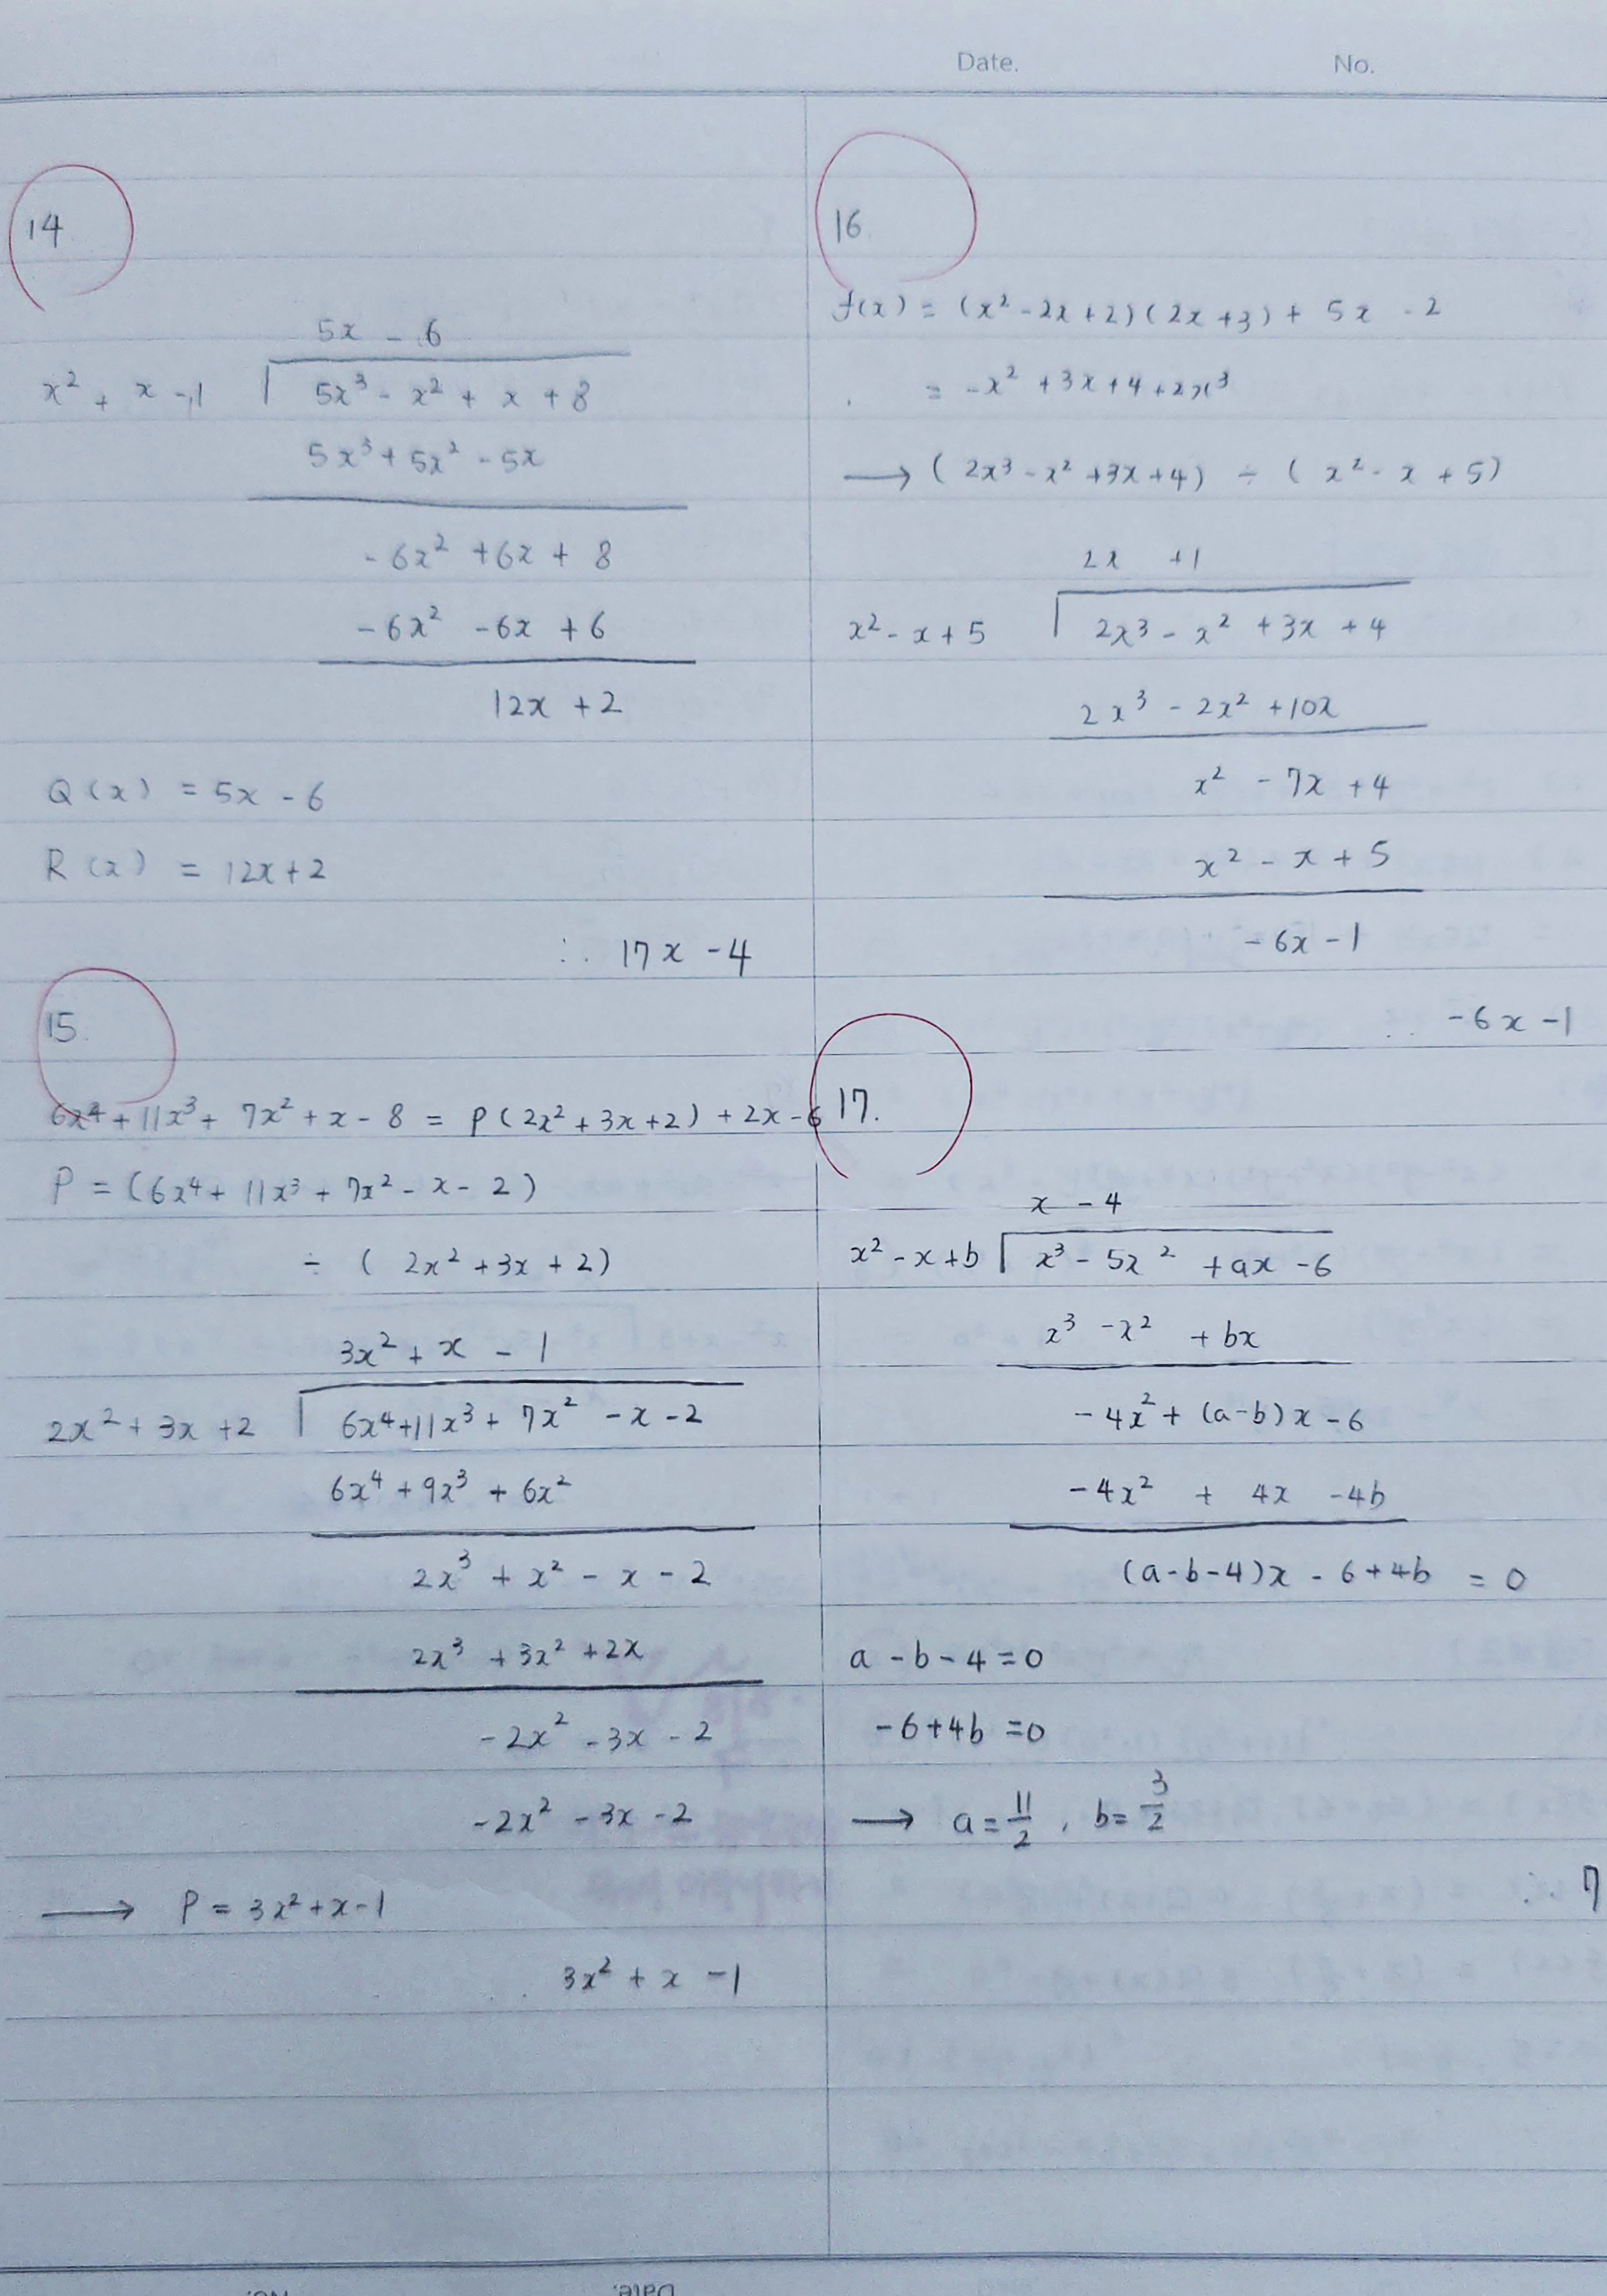 Date. No.
14
5x - 6
x² + x - 1 5x³ - x² + x + 8
5x³ + 5x² - 5x
-6x² + 6x + 8
-6x² - 6x + 6
12x + 2
Q(x) = 5x - 6
R(x) = 12x + 2
∴ 17x - 4
15.
6x⁴ + 11x³ + 7x² + x - 8 = P(2x² + 3x + 2) + 2x - 6
P = (6x⁴ + 11x³ + 7x² - x - 2)
÷ (2x² + 3x + 2)
3x² + x - 1
2x² + 3x + 2 6x⁴ + 11x³ + 7x² - x - 2
6x⁴ + 9x³ + 6x²
2x³ + x² - x - 2
2x³ + 3x² + 2x
-2x² - 3x - 2
-2x² - 3x - 2
→ P = 3x² + x - 1
∴ 3x² + x - 1
16.
f(x) = (x² - 2x + 2)(2x + 3) + 5x - 2
= -x² + 3x + 4 + 2x³
→ (2x³ - x² + 3x + 4) ÷ (x² - x + 5)
2x + 1
x² - x + 5 2x³ - x² + 3x + 4
2x³ - 2x² + 10x
x² - 7x + 4
x² - x + 5
-6x - 1
∴ -6x - 1
17.
x - 4
x² - x + b x³ - 5x² + ax - 6
x³ - x² + bx
-4x² + (a-b)x - 6
-4x² + 4x - 4b
(a-b-4)x - 6 + 4b = 0
a - b - 4 = 0
-6 + 4b = 0
→ a = 11/2, b = 3/2
∴ 7
Date.
No.